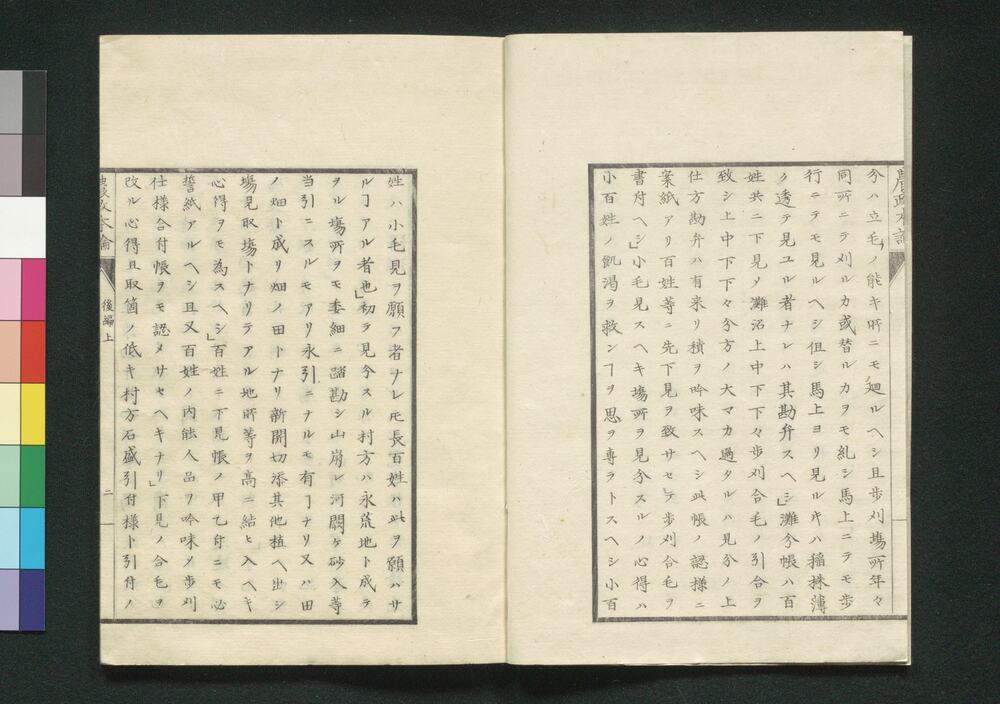 農政本論
分ハ立毛ノ能キ所ニモ廻ルヘシ且歩刈場所年々
同所ニテ刈ルカ或替ルカヲモ糺シ馬上ニテモ歩
行ニテモ見ルヘシ但シ馬上ヨリ見ル𪜈ハ稲株薄
ク透テ見ユル者ナレハ其勘弁スヘシ」灘分帳ハ百
姓共ニ下見〆灘沼上中下下々歩刈合毛ノ引合ヲ
致シ上中下下々分方ノ大マカ過タルハ見分ノ上
仕方勘弁ハ有来リ積ヲ吟味スヘシ此帳ノ認様ニ
案紙アリ百姓等ニ先下見ヲ致サセ」テ歩刈合毛ヲ
書付ヘシ」小毛見スヘキ場所ヲ見分スルノ心得ハ
小百姓ノ飢渇ヲ救ンヿヲ思ヲ専ラトスヘシ小百
姓ハ小毛見ヲ願フ者ナレ𪜈長百姓ハ此ヲ願ハサ
ルヿアル者也」初テ見分スル村方ハ永荒地ト成テ
ヲル場所ヲモ委細ニ踏勘シ山崩レ河闕ケ砂入等
当引ニスルモアリ永引ニナルモ有ヿナリ又ハ田
ノ畑ト成リ畑ノ田トナリ新開切添其他植ヘ出シ
場見取場トナリテアル地所等ヲ高ニ結ヒ入ヘキ
心得ヲモ為スヘシ」百姓ニ下見帳ノ甲乙付ニモ必
誓紙アルヘシ且又百姓ノ内能人品ヲ吟味〆歩刈
仕様合付帳ヲモ認メサセヘキナリ」下見ノ合毛ヲ
改ル心得且取箇ノ低キ村方石盛引付様ト引付ノ
農政本論
後編上
二